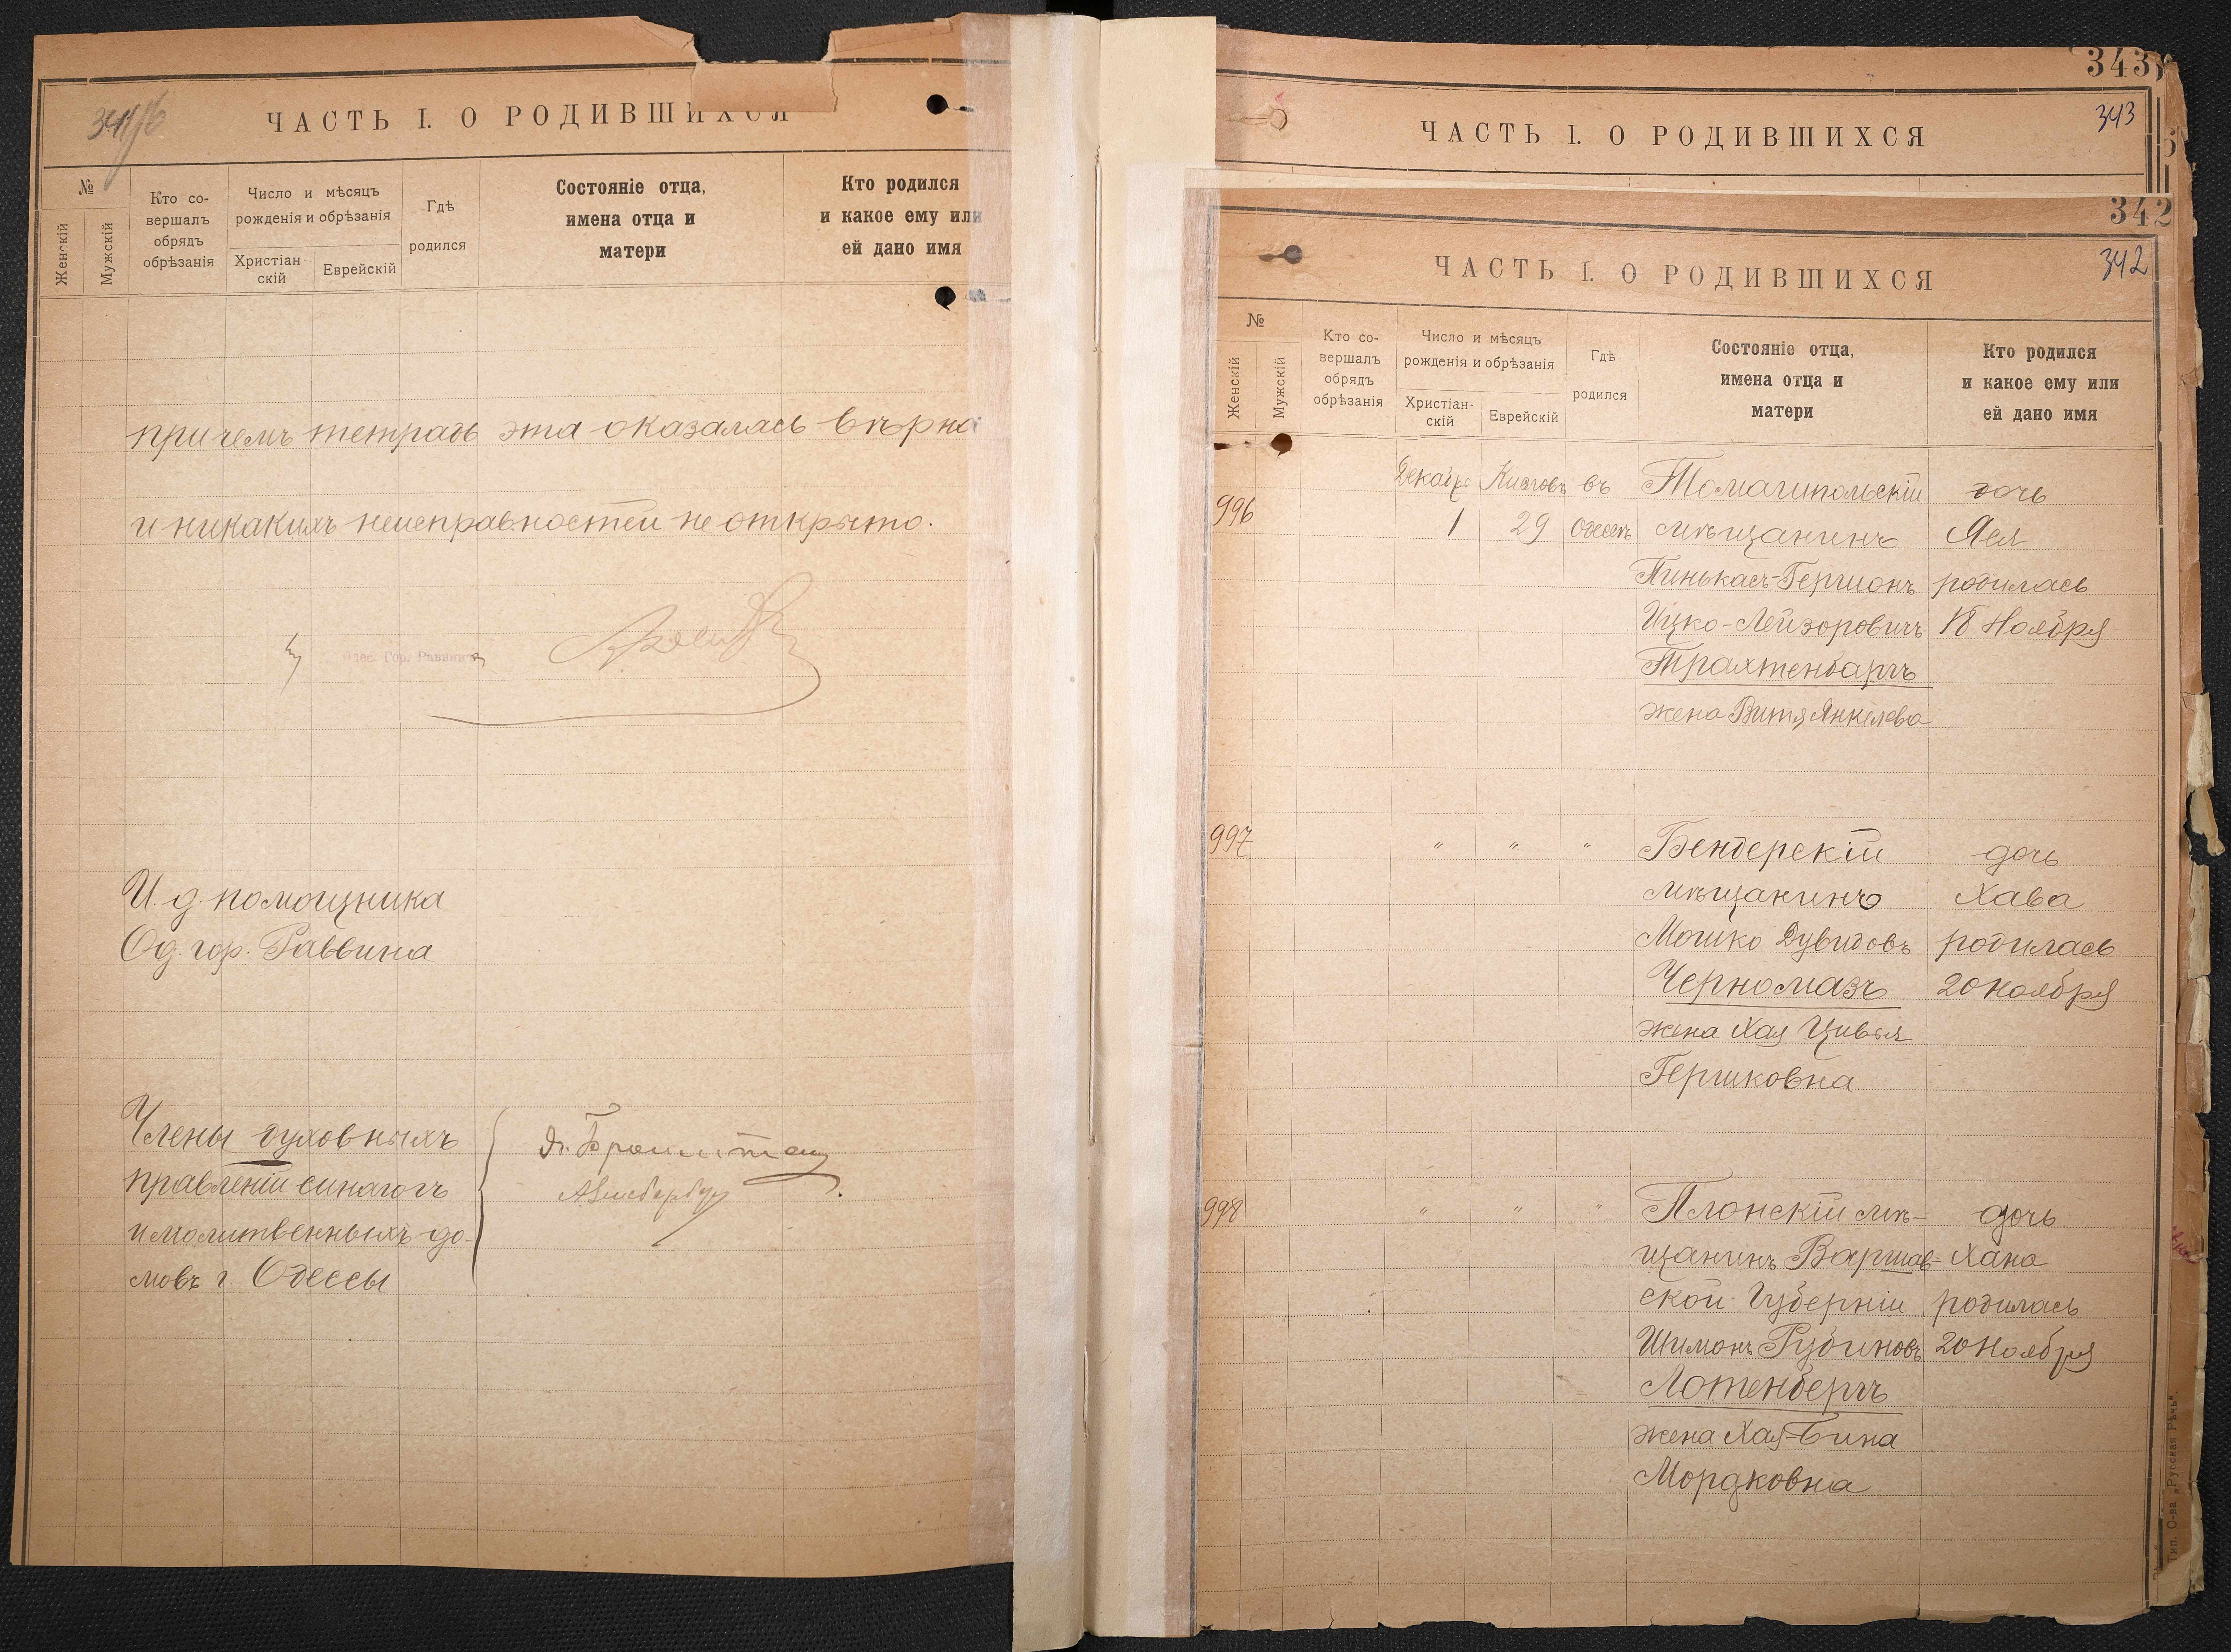 ЧАСТЬ I. О РОДИВШИХСЯ
№
Женскій
Мужскій
Кто со-
вершалъ
обрядъ
обрѣзанія
Число и мѣсяцъ
рожденія и обрѣзанія
Христіан
скій
Еврейскій
Гдѣ
родился
Состояніе отца,
имена отца и
матери
Кто родился
и какое ему или
ей дано имя
причемъ тетрадь эта оказалась вѣрна
и никакихъ неисправностей не открыто.
Одес. Гор. Раввинъ
И. д. помощника
Од. гор. Раввина
Члены духовныхъ
правленій синагогъ
и молитвенныхъ до-
мовъ г. Одессы
343
ЧАСТЬ I. О РОДИВШИХСЯ
343
342
ЧАСТЬ I. О РОДИВШИХСЯ
342
№
Женскій
Мужскій
Кто со-
вершалъ
обрядъ
обрѣзанія
Число и мѣсяцъ
рожденія и обрѣзанія
Христіан-
скій
Еврейскій
Гдѣ
родился
Состояніе отца,
имена отца и
матери
Кто родился
и какое ему или
ей дано имя
Декабр Кислевъ въ Томашпольскій дочь
996 1 29 Одессѣ мѣщанинъ Ася
Пинькасъ-Гершонъ родилась
Ицко-Лейзоровичъ 18 Ноября
Трахтенбаргъ
жена Витя Янкелева
997 " " " Бендерскій дочь
мѣщанинъ Хава
Мошко Дувидовъ родилась
Черномазъ 20 Ноября
жена Хая Цивья
Гершковна
998 " " " Плонскій мѣ- дочь
щанинъ Варшав- Хана
ской Губерніи родилась
Шимонъ Рубиновъ 20 Ноября
Лотенбергъ
жена Хая-Бина
Мордковна
Тип. О-ва „Русская Рѣчь".